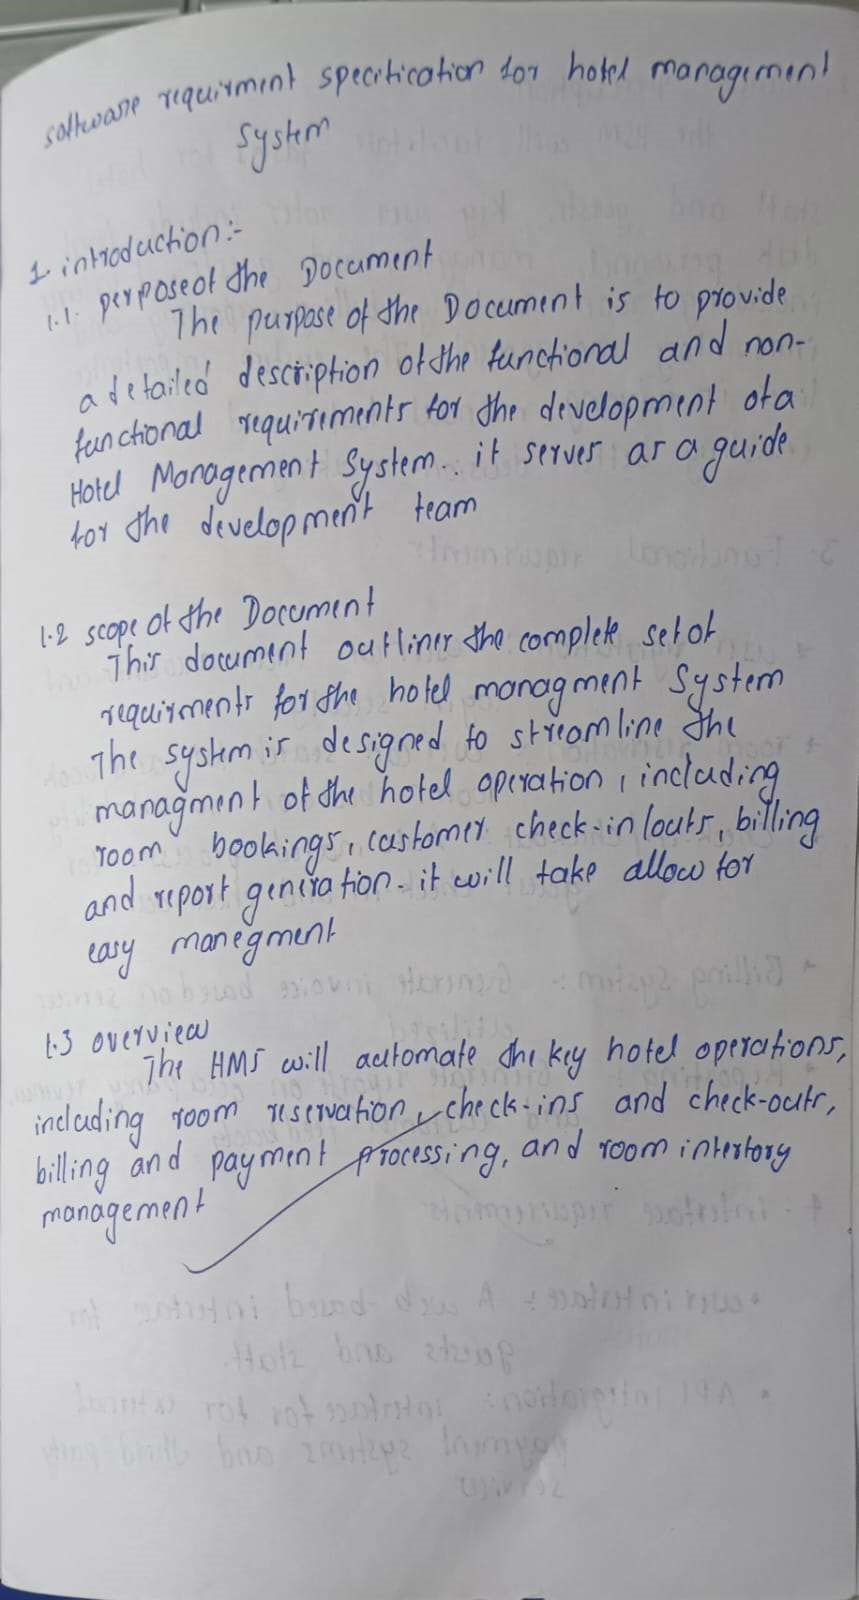 software requirment specification for hotel managment
System
1. introduction:-
1.1. perpose of the Document
The purpose of the Document is to provide
a detailed description of the functional and non-
functional requirements for the development of a
Hotel Management System.. it serves as a guide
for the development team
1.2 scope of the Document
This document outlines the complete set of
requirments for the hotel managment System
The system is designed to streamline the
managment of the hotel operation, including
room bookings, customer check-in/outs, billing
and report generation. it will take allow for
easy manegment
1.3 overview
The HMS will automate the key hotel operations,
including room reservation, check-ins and check-outs,
billing and payment processing, and room intertory
management